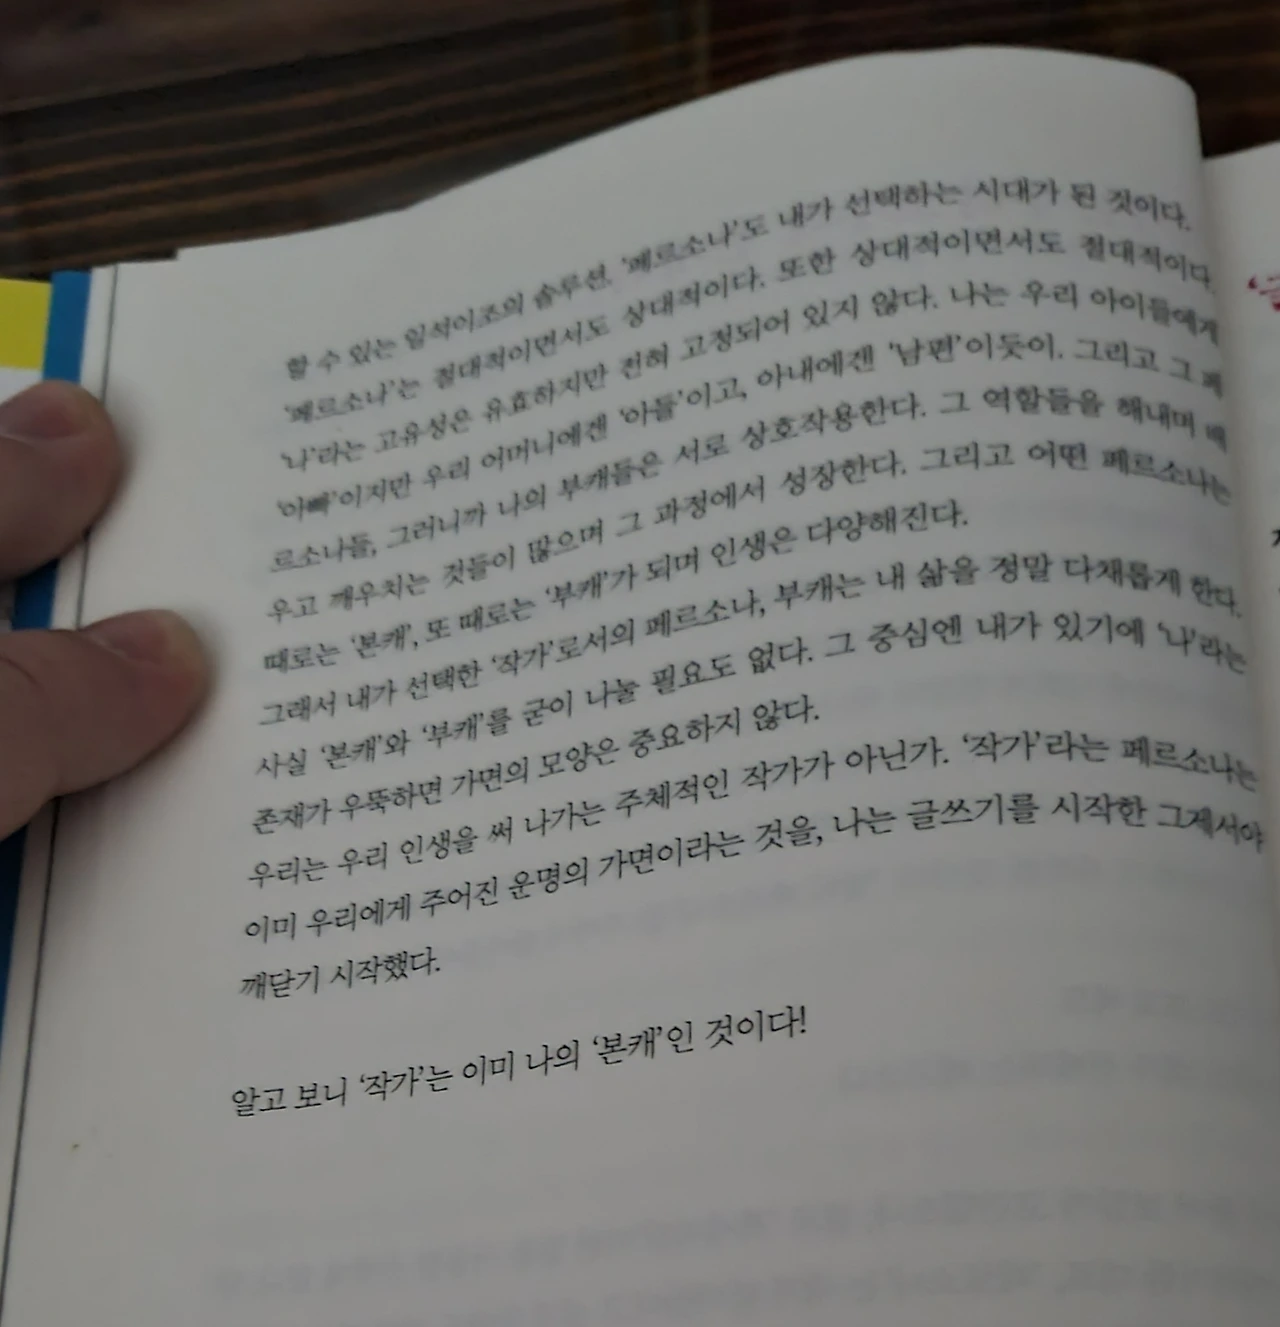 할 수 있는 일석이조의 솔루션. '페르소나'도 내가 선택하는 시대가 된 것이다.
'페르소나'는 절대적이면서도 상대적이다. 또한 상대적이면서도 절대적이다.
'나'라는 고유성은 유효하지만 전혀 고정되어 있지 않다. 나는 우리 아이들에게
'아빠'이지만 우리 어머니에겐 '아들'이고, 아내에겐 '남편'이듯이. 그리고 그 페
르소나들, 그러니까 나의 부캐들은 서로 상호작용한다. 그 역할들을 해내며 배
우고 깨우치는 것들이 많으며 그 과정에서 성장한다. 그리고 어떤 페르소나는
때로는 '본캐', 또 때로는 '부캐'가 되며 인생은 다양해진다.
그래서 내가 선택한 '작가'로서의 페르소나, 부캐는 내 삶을 정말 다채롭게 한다.
사실 '본캐'와 '부캐'를 굳이 나눌 필요도 없다. 그 중심엔 내가 있기에 '나'라는
존재가 우뚝하면 가면의 모양은 중요하지 않다.
우리는 우리 인생을 써 나가는 주체적인 작가가 아닌가. '작가'라는 페르소나는
이미 우리에게 주어진 운명의 가면이라는 것을, 나는 글쓰기를 시작한 그제서야
깨닫기 시작했다.
알고 보니 '작가'는 이미 나의 '본캐'인 것이다!